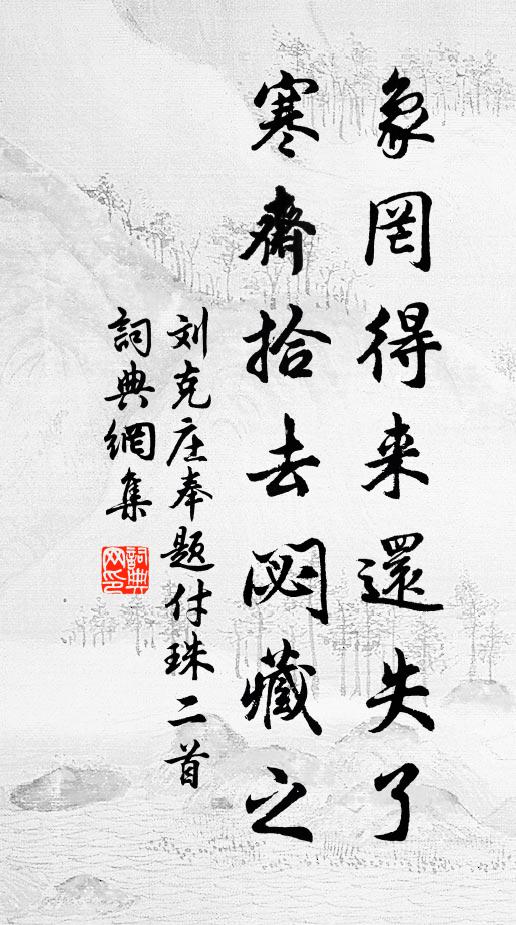 象罔得来還失了
寒齋拾去閟藏之
刘克庄奉题付珠二首
詞典網集
詞典网印